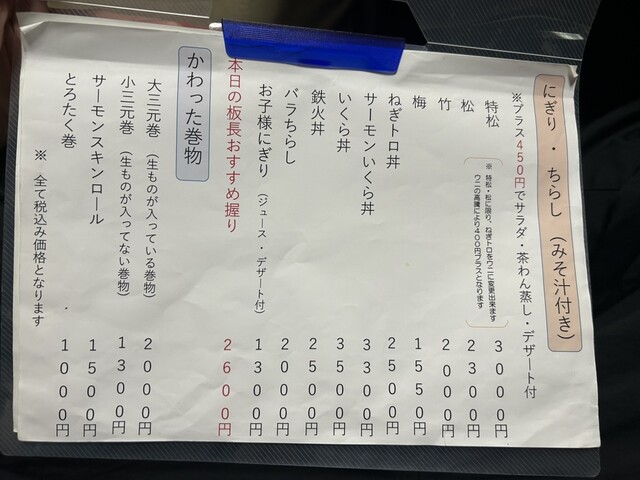 にぎり・ちらし（みそ汁付き）
※プラス450円でサラダ・茶わん蒸し・デザート付
特松 3000円
松 2300円
※ 特松・松に限り、ねぎトロをウニに変更出来ます
ウニの高騰により400円プラスとなります
竹 2000円
梅 1550円
ねぎトロ丼 2500円
サーモンいくら丼 3300円
いくら丼 3500円
鉄火丼 2500円
バラちらし 2000円
お子様にぎり（ジュース・デザート付） 1300円
本日の板長おすすめ握り 2600円
かわった巻物
大三元巻（生ものが入っている巻物） 2000円
小三元巻（生ものが入ってない巻物） 1300円
サーモンスキンロール 1500円
とろたく巻 1000円
※ 全て税込み価格となります